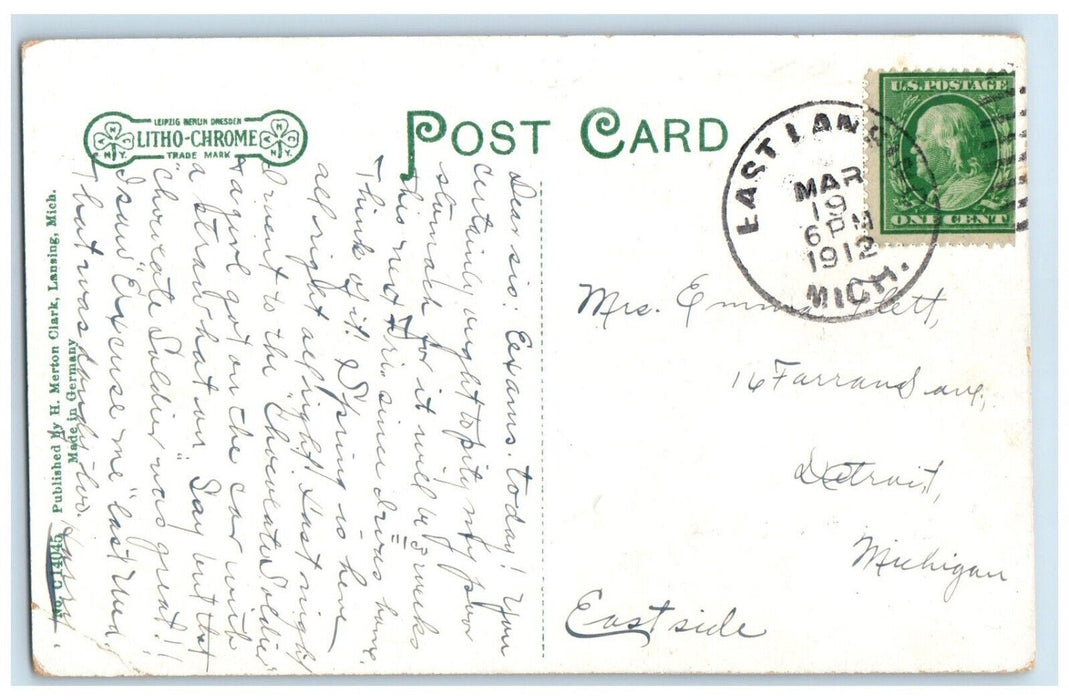 LEIPZIG BERLIN DRESDEN
LITHO-CHROME
TRADE MARK
POST CARD
U.S. POSTAGE
ONE CENT
EAST LANS
MAR
19
6 PM
1912
MICH.
No. C14045 Published By H. Merton Clark, Lansing, Mich.
Made in Germany
Dear sis: Eexams. today! You
certainly ought to pity my poor
stumach for it will be 3 weeks
this next Fri. since I was home.
Think of it! Spring is here
all right all right! Last night
I went to the "Chocolate Soldier
& a girl got on the car with
a straw hat on. Say but that
"Chocolate Soldier" was great!!
I saw "Excuse me" last Wed
that was dandy too.
Mrs. Emma
16 Farrand ave.,
Detroit,
Michigan
East side